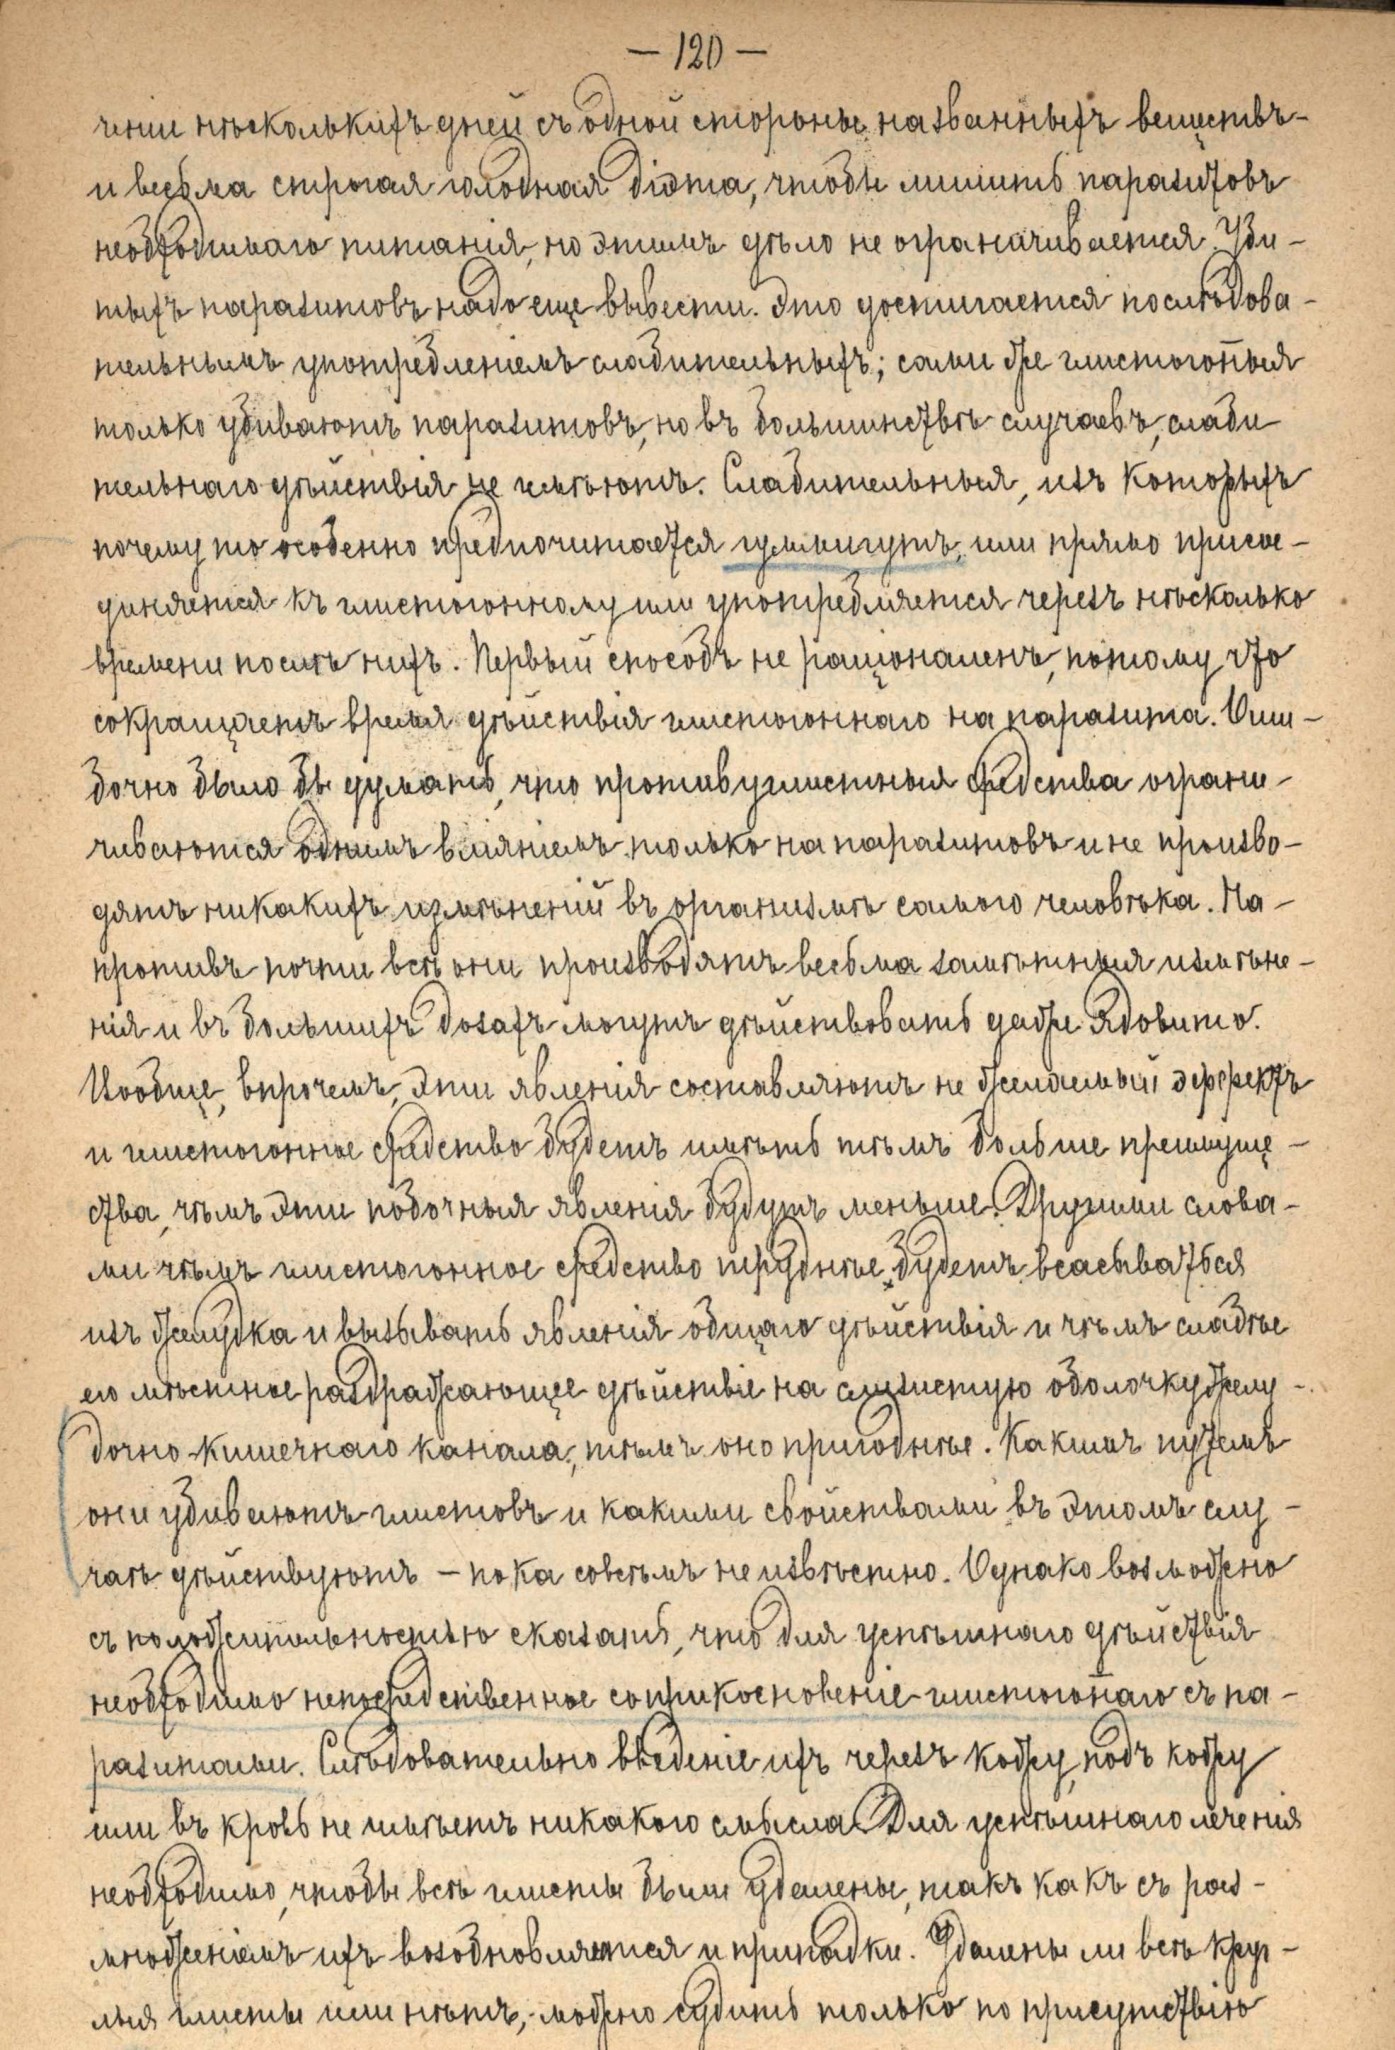 — 120 —
ченіи нѣсколькихъ дней съ одной стороны названныхъ веществъ-
и весьма строгая голодная діэта, чтобы лишить паразитовъ
необходимаго питанія, но этимъ дѣло не ограничивается. Уби-
тыхъ паразитовъ надо еще вывести. Это достигается послѣдова-
тельнымъ употребленіемъ слабительныхъ; сами же глистогонныя
только убиваютъ паразитовъ, но въ большинствѣ случаевъ, слаби
тельнаго дѣйствія не имѣютъ. Слабительныя, изъ которыхъ
почему то особенно предпочитается гуммигутъ, или прямо присое-
диняется къ глистогонному или употребляется черезъ нѣсколько
времени послѣ нихъ. Первый способъ не раціоналенъ, потому что
сокращаетъ время дѣйствія глистогоннаго на паразита. Оши-
бочно было бы думать, что противуглистныя средства ограни-
чиваются однимъ вліяніемъ только на паразитовъ и не произво-
дятъ никакихъ измѣненій въ организмѣ самого человѣка. На-
противъ почти всѣ они производятъ весьма замѣтныя измѣне-
нія и въ большихъ дозахъ могутъ дѣйствовать даже ядовито.
Вообще, впрочемъ, эти явленія составляютъ не желаемый эффектъ
и глистогонное средство будетъ имѣть тѣмъ больше преимуще-
ства, чѣмъ эти побочныя явленія будутъ меньше. Другими слова-
ми чѣмъ глистогонное средство труднѣе будетъ всасываться
изъ желудка и вызывать явленія общаго дѣйствія и чѣмъ слабѣе
его мѣстное раздражающее дѣйствіе на слизистую оболочку желу-
дочно-кишечнаго канала, тѣмъ оно пригоднѣе. Какимъ путемъ
они убиваютъ глистовъ и какими свойствами въ этомъ слу-
чаѣ дѣйствуютъ — пока совсѣмъ неизвѣстно. Однако возможно
съ положительностью сказать, что для успѣшнаго дѣйствія
необходимо непосредственное соприкосновеніе глистогоннаго съ па-
разитами. Слѣдовательно введеніе ихъ черезъ кожу, подъ кожу
или въ кровь не имѣетъ никакого смысла. Для успѣшнаго леченія
необходимо, чтобы всѣ глисты были удалены, такъ какъ съ раз-
множеніемъ ихъ возобновляются и припадки. Удалены ли всѣ круг-
лыя глисты или нѣтъ, можно судить только по присутствію